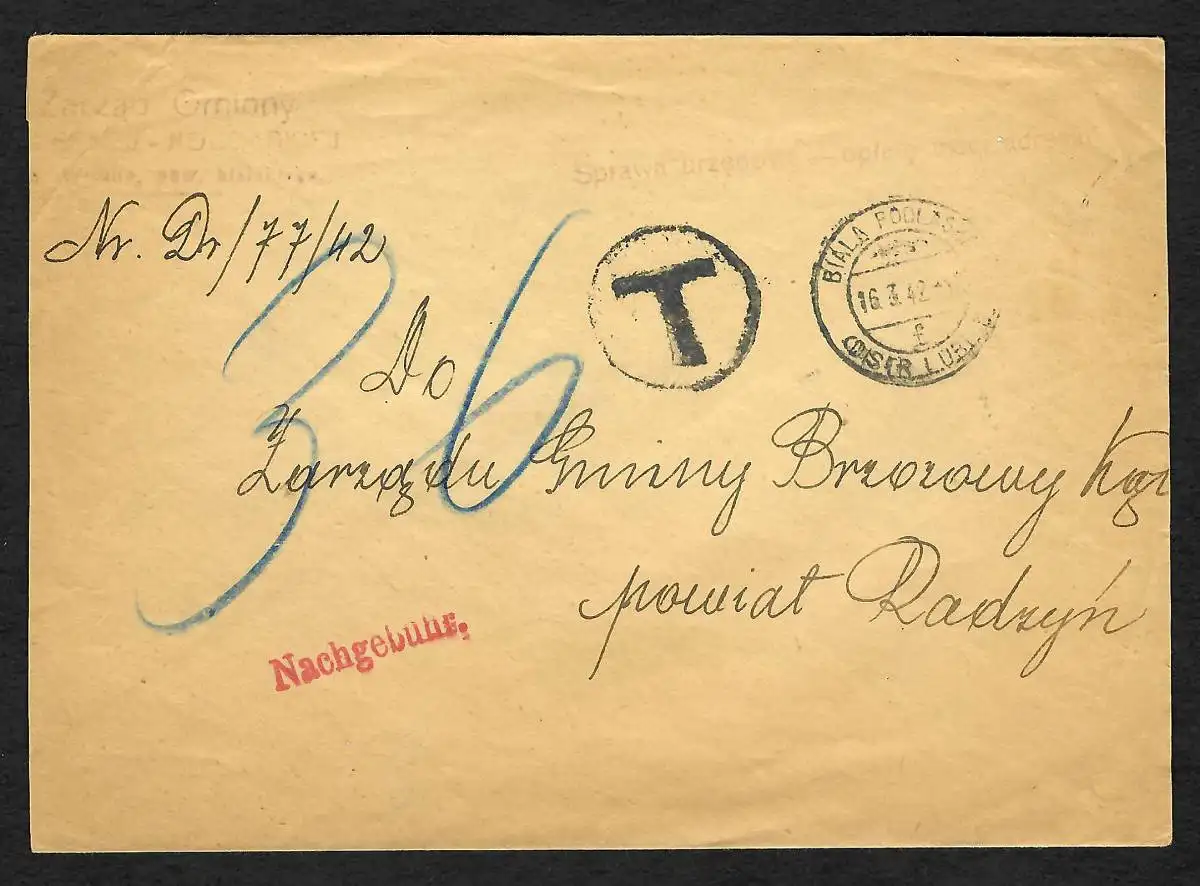 Zarząd Gminny
Sprawa urzędowa — opłaci
Nr. Dr/77/42
36
T
BIALA PODLAS
16.3.42
f
(DISTR. LUBL
Do
Zarządu Gminny Brzozowy Kąt
powiat Radzyń
Nachgebühr.